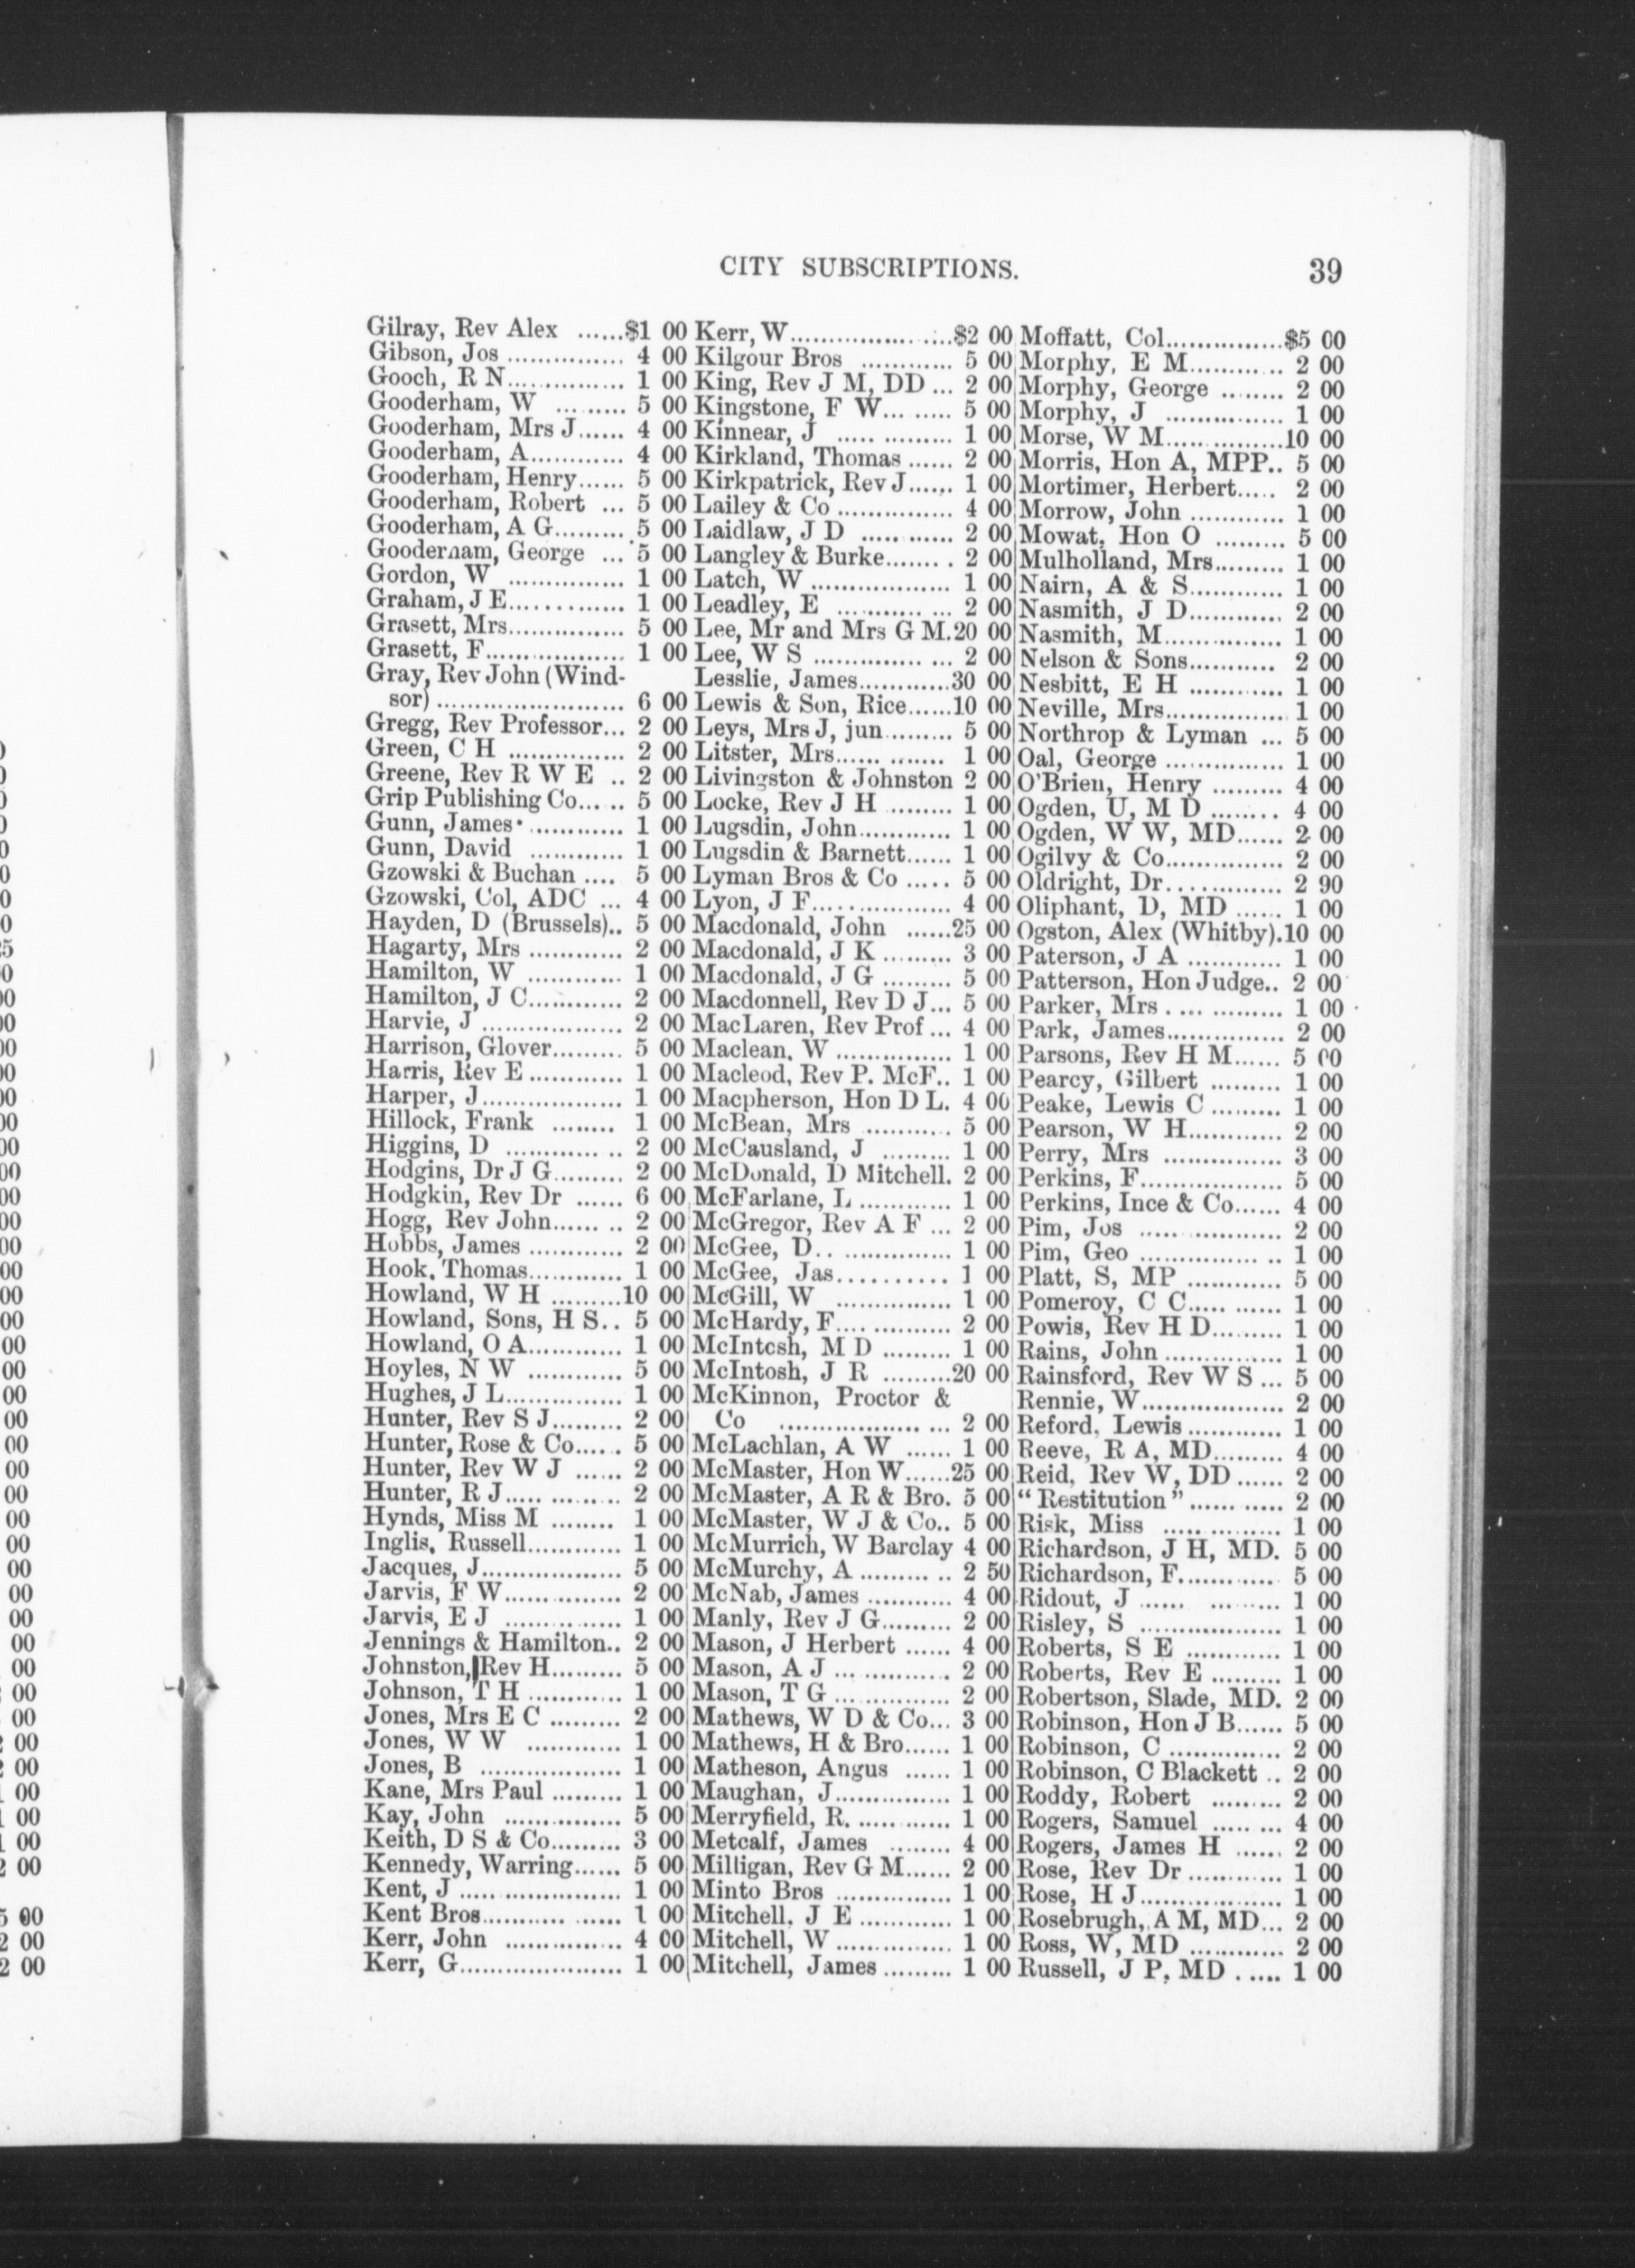 CITY SUBSCRIPTIONS.
39
Gilray, Rev Alex ......$1 00
Gibson, Jos ............... 4 00
Gooch, R N............... 1 00
Gooderham, W ......... 5 00
Gooderham, Mrs J...... 4 00
Gooderham, A............ 4 00
Gooderham, Henry...... 5 00
Gooderham, Robert ... 5 00
Gooderham, A G......... 5 00
Gooderham, George ... 5 00
Gordon, W ............... 1 00
Graham, J E.............. 1 00
Grasett, Mrs............... 5 00
Grasett, F.................. 1 00
Gray, Rev John (Wind-
sor) ........................ 6 00
Gregg, Rev Professor... 2 00
Green, C H ............... 2 00
Greene, Rev R W E .. 2 00
Grip Publishing Co...... 5 00
Gunn, James ............ 1 00
Gunn, David ............ 1 00
Gzowski & Buchan .... 5 00
Gzowski, Col, ADC ... 4 00
Hayden, D (Brussels).. 5 00
Hagarty, Mrs ............ 2 00
Hamilton, W ............ 1 00
Hamilton, J C............ 2 00
Harvie, J .................. 2 00
Harrison, Glover......... 5 00
Harris, Rev E ............ 1 00
Harper, J.................. 1 00
Hillock, Frank ........ 1 00
Higgins, D .............. 2 00
Hodgins, Dr J G......... 2 00
Hodgkin, Rev Dr ...... 6 00
Hogg, Rev John........ 2 00
Hobbs, James ............ 2 00
Hook, Thomas............ 1 00
Howland, W H .........10 00
Howland, Sons, H S.. 5 00
Howland, O A............ 1 00
Hoyles, N W ............ 5 00
Hughes, J L............... 1 00
Hunter, Rev S J......... 2 00
Hunter, Rose & Co...... 5 00
Hunter, Rev W J ...... 2 00
Hunter, R J.............. 2 00
Hynds, Miss M ........ 1 00
Inglis, Russell............ 1 00
Jacques, J.................. 5 00
Jarvis, F W............... 2 00
Jarvis, E J ............... 1 00
Jennings & Hamilton.. 2 00
Johnston, Rev H......... 5 00
Johnson, T H ............ 1 00
Jones, Mrs E C ......... 2 00
Jones, W W ............ 1 00
Jones, B .................. 1 00
Kane, Mrs Paul ......... 1 00
Kay, John ............... 5 00
Keith, D S & Co......... 3 00
Kennedy, Warring...... 5 00
Kent, J ..................... 1 00
Kent Bros.................. 1 00
Kerr, John ............... 4 00
Kerr, G..................... 1 00
Kerr, W.....................$2 00
Kilgour Bros ............ 5 00
King, Rev J M, DD ... 2 00
Kingstone, F W......... 5 00
Kinnear, J ............... 1 00
Kirkland, Thomas ...... 2 00
Kirkpatrick, Rev J...... 1 00
Lailey & Co ............... 4 00
Laidlaw, J D ............ 2 00
Langley & Burke........ 2 00
Latch, W .................. 1 00
Leadley, E ............... 2 00
Lee, Mr and Mrs G M.20 00
Lee, W S ................. 2 00
Lesslie, James............30 00
Lewis & Son, Rice......10 00
Leys, Mrs J, jun ......... 5 00
Litster, Mrs............. 1 00
Livingston & Johnston 2 00
Locke, Rev J H ......... 1 00
Lugsdin, John............ 1 00
Lugsdin & Barnett...... 1 00
Lyman Bros & Co ..... 5 00
Lyon, J F.................. 4 00
Macdonald, John ......25 00
Macdonald, J K ......... 3 00
Macdonald, J G ......... 5 00
Macdonnell, Rev D J... 5 00
MacLaren, Rev Prof ... 4 00
Maclean, W ............... 1 00
Macleod, Rev P. McF.. 1 00
Macpherson, Hon D L. 4 00
McBean, Mrs ........... 5 00
McCausland, J ......... 1 00
McDonald, D Mitchell. 2 00
McFarlane, L ............ 1 00
McGregor, Rev A F ... 2 00
McGee, D................. 1 00
McGee, Jas.......... 1 00
McGill, W ............... 1 00
McHardy, F............... 2 00
McIntcsh, M D ......... 1 00
McIntosh, J R .........20 00
McKinnon, Proctor &
Co ...................... 2 00
McLachlan, A W ...... 1 00
McMaster, Hon W......25 00
McMaster, A R & Bro. 5 00
McMaster, W J & Co.. 5 00
McMurrich, W Barclay 4 00
McMurchy, A ........... 2 50
McNab, James ........... 4 00
Manly, Rev J G......... 2 00
Mason, J Herbert ...... 4 00
Mason, A J ............... 2 00
Mason, T G ............... 2 00
Mathews, W D & Co... 3 00
Mathews, H & Bro...... 1 00
Matheson, Angus ...... 1 00
Maughan, J............... 1 00
Merryfield, R. ............ 1 00
Metcalf, James ........ 4 00
Milligan, Rev G M...... 2 00
Minto Bros ............... 1 00
Mitchell, J E ............ 1 00
Mitchell, W ............... 1 00
Mitchell, James ......... 1 00
Moffatt, Col...............$5 00
Morphy, E M............ 2 00
Morphy, George ........ 2 00
Morphy, J ............... 1 00
Morse, W M...............10 00
Morris, Hon A, MPP.. 5 00
Mortimer, Herbert..... 2 00
Morrow, John ............ 1 00
Mowat, Hon O ......... 5 00
Mulholland, Mrs......... 1 00
Nairn, A & S............ 1 00
Nasmith, J D............ 2 00
Nasmith, M............... 1 00
Nelson & Sons........... 2 00
Nesbitt, E H ............ 1 00
Neville, Mrs................ 1 00
Northrop & Lyman ... 5 00
Oal, George ............... 1 00
O'Brien, Henry ......... 4 00
Ogden, U, M D ........ 4 00
Ogden, W W, MD...... 2 00
Ogilvy & Co............... 2 00
Oldright, Dr............... 2 90
Oliphant, D, MD ...... 1 00
Ogston, Alex (Whitby).10 00
Paterson, J A ............ 1 00
Patterson, Hon Judge.. 2 00
Parker, Mrs ............. 1 00
Park, James............... 2 00
Parsons, Rev H M...... 5 00
Pearcy, Gilbert ......... 1 00
Peake, Lewis C ......... 1 00
Pearson, W H............ 2 00
Perry, Mrs ............... 3 00
Perkins, F.................. 5 00
Perkins, Ince & Co...... 4 00
Pim, Jos .................. 2 00
Pim, Geo ................. 1 00
Platt, S, MP ............ 5 00
Pomeroy, C C............ 1 00
Powis, Rev H D......... 1 00
Rains, John ............... 1 00
Rainsford, Rev W S ... 5 00
Rennie, W.................. 2 00
Reford, Lewis ............ 1 00
Reeve, R A, MD......... 4 00
Reid, Rev W, DD ...... 2 00
" Restitution " ............ 2 00
Risk, Miss ............... 1 00
Richardson, J H, MD. 5 00
Richardson, F............ 5 00
Ridout, J ............... 1 00
Risley, S .................. 1 00
Roberts, S E ............ 1 00
Roberts, Rev E ......... 1 00
Robertson, Slade, MD. 2 00
Robinson, Hon J B...... 5 00
Robinson, C .............. 2 00
Robinson, C Blackett .. 2 00
Roddy, Robert ......... 2 00
Rogers, Samuel ......... 4 00
Rogers, James H ...... 2 00
Rose, Rev Dr ............ 1 00
Rose, H J.................. 1 00
Rosebrugh, A M, MD... 2 00
Ross, W, MD ............ 2 00
Russell, J P, MD ...... 1 00